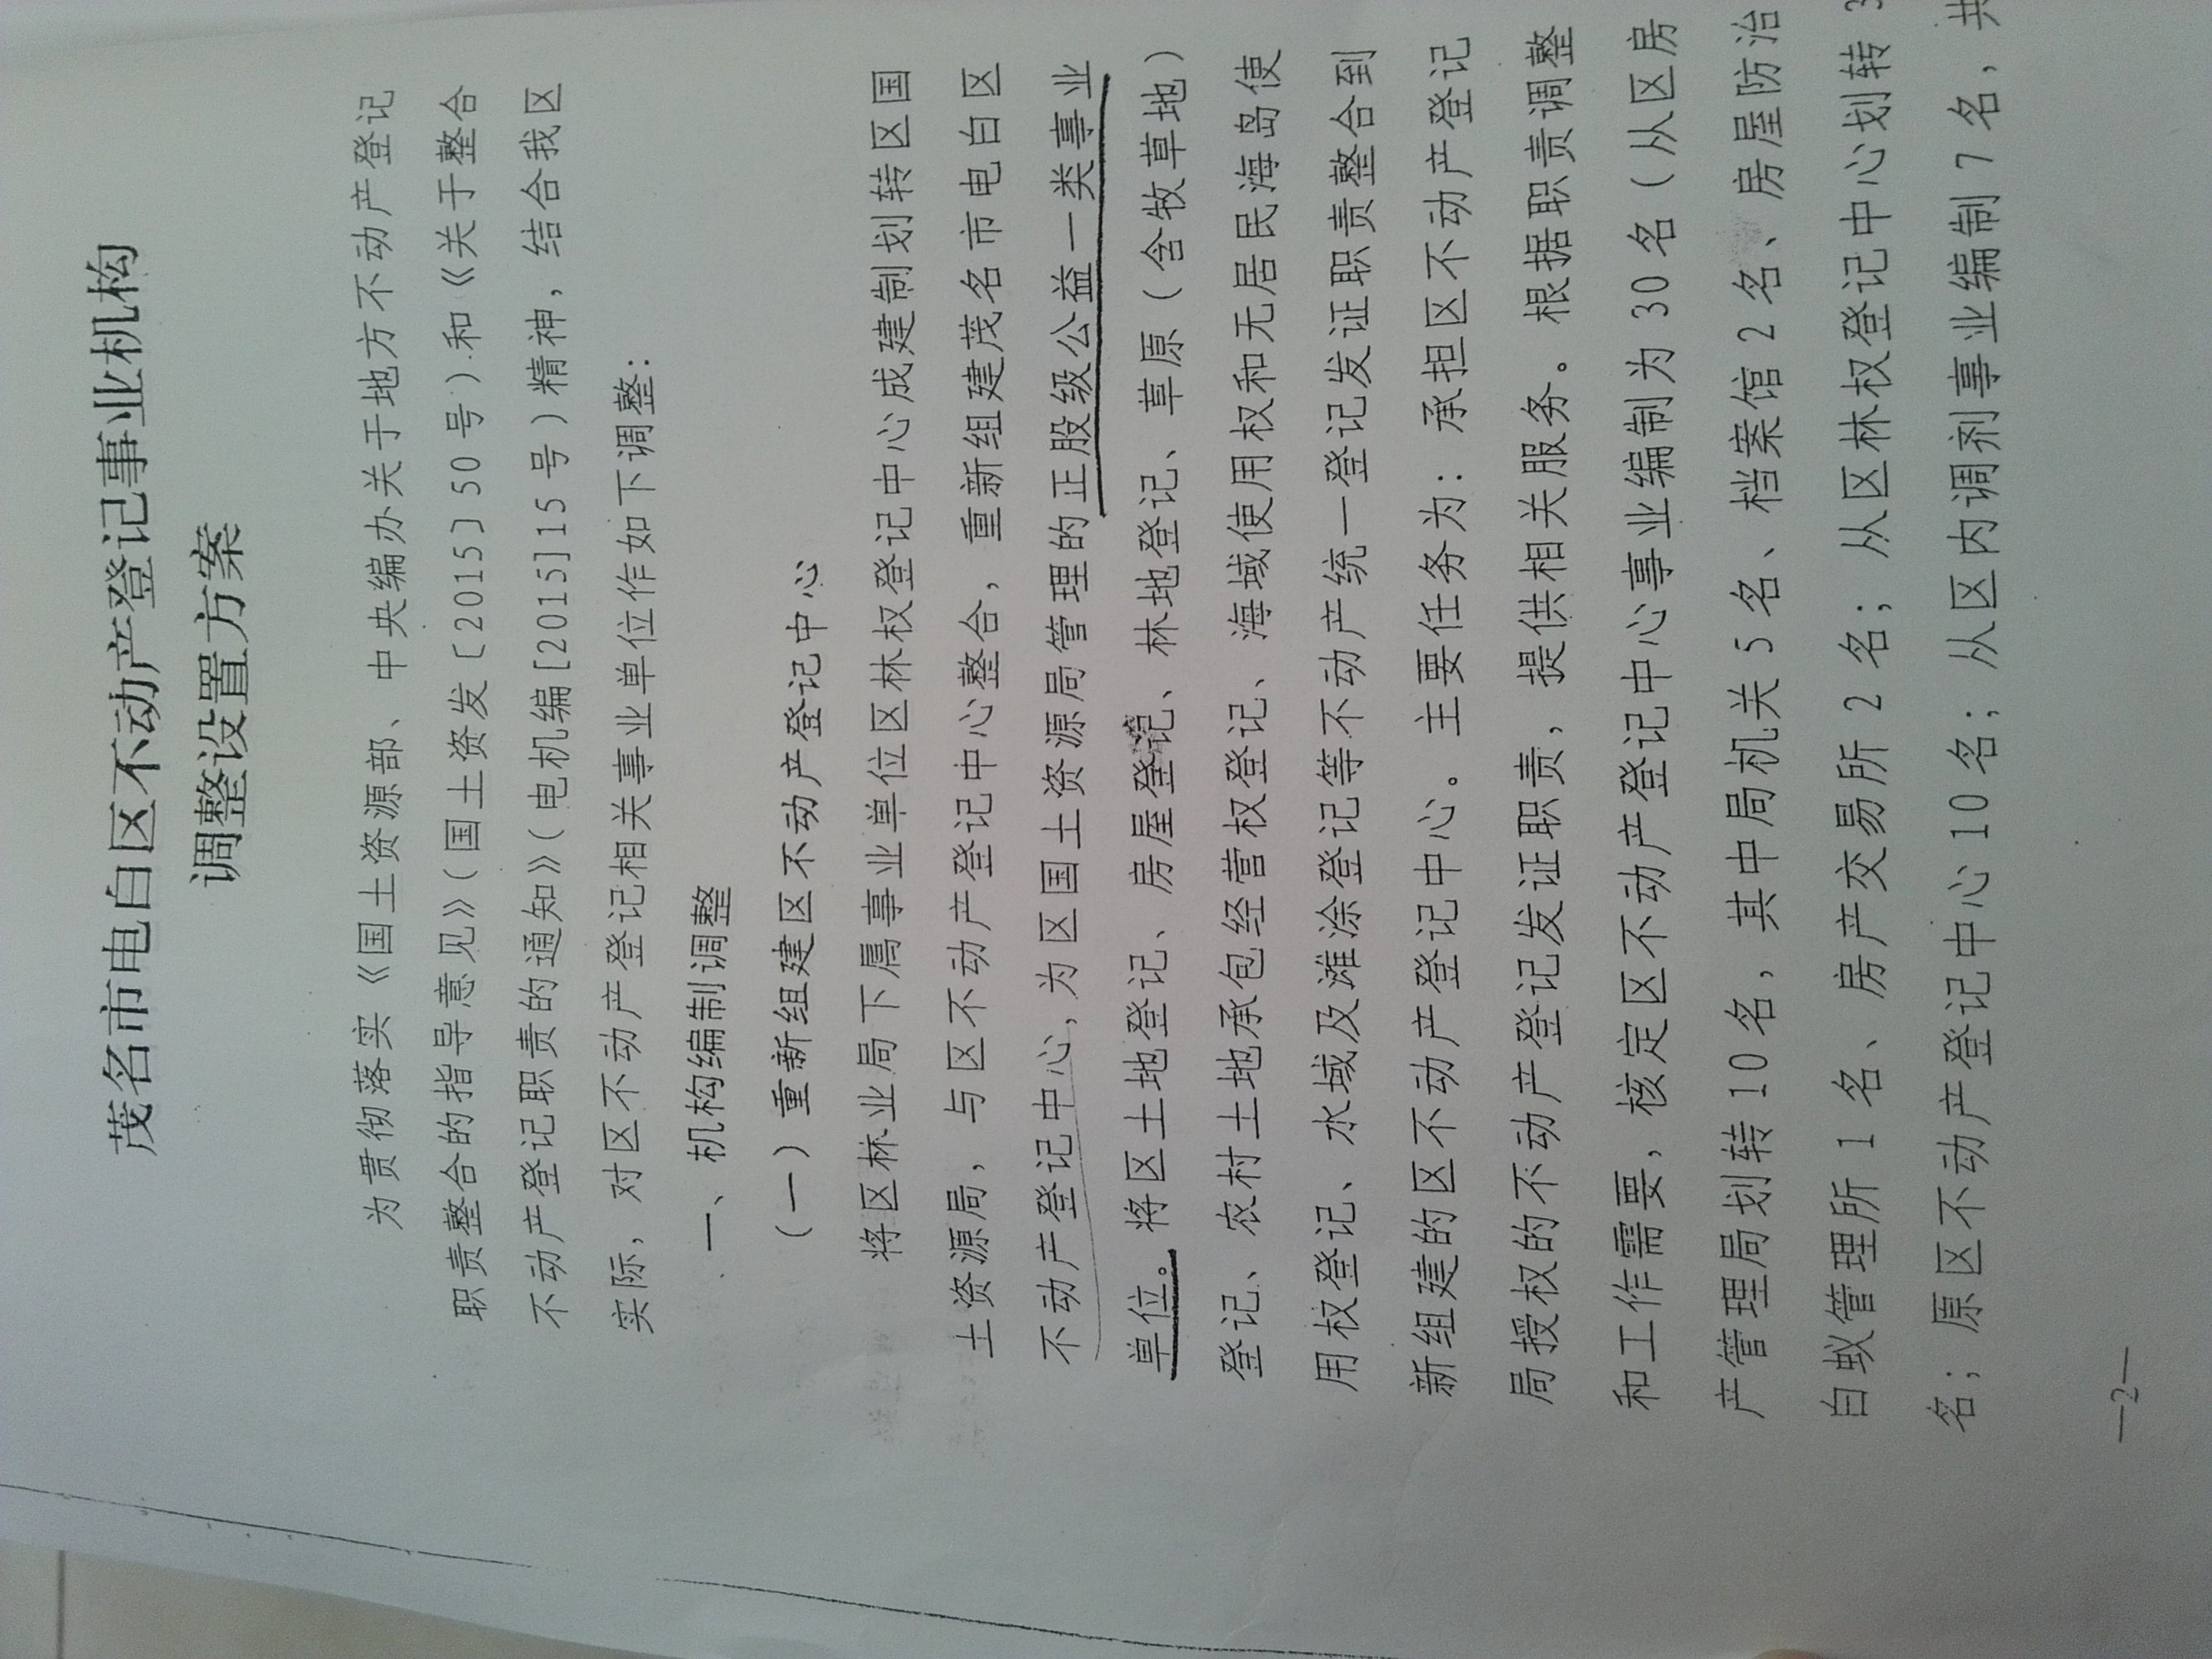 茂名市电白区不动产登记事业机构
调整设置方案
为贯彻落实《国土资源部、中央编办关于地方不动产登记
职责整合的指导意见》(国土资发〔2015〕50号)和《关于整合
不动产登记职责的通知》(电机编[2015]15号)精神,结合我区
实际,对区不动产登记相关事业单位作如下调整:
一、机构编制调整
(一)重新组建区不动产登记中心
将区林业局下属事业单位区林权登记中心成建制划转区国
土资源局,与区不动产登记中心整合,重新组建茂名市电白区
不动产登记中心,为区国土资源局管理的正股级公益一类事业
单位。将区土地登记、房屋登记、林地登记、草原(含牧草地)
登记、农村土地承包经营权登记、海域使用权和无居民海岛使
用权登记、水域及滩涂登记等不动产统一登记发证职责整合到
新组建的区不动产登记中心。主要任务为:承担区不动产登记
局授权的不动产登记发证职责,提供相关服务。根据职责调整
和工作需要,核定区不动产登记中心事业编制为30名(从区房
产管理局划转10名,其中局机关5名、档案馆2名、房屋防治
白蚁管理所1名、房产交易所2名;从区林权登记中心划转3
名;原区不动产登记中心10名;从区内调剂事业编制7名,共
—2—